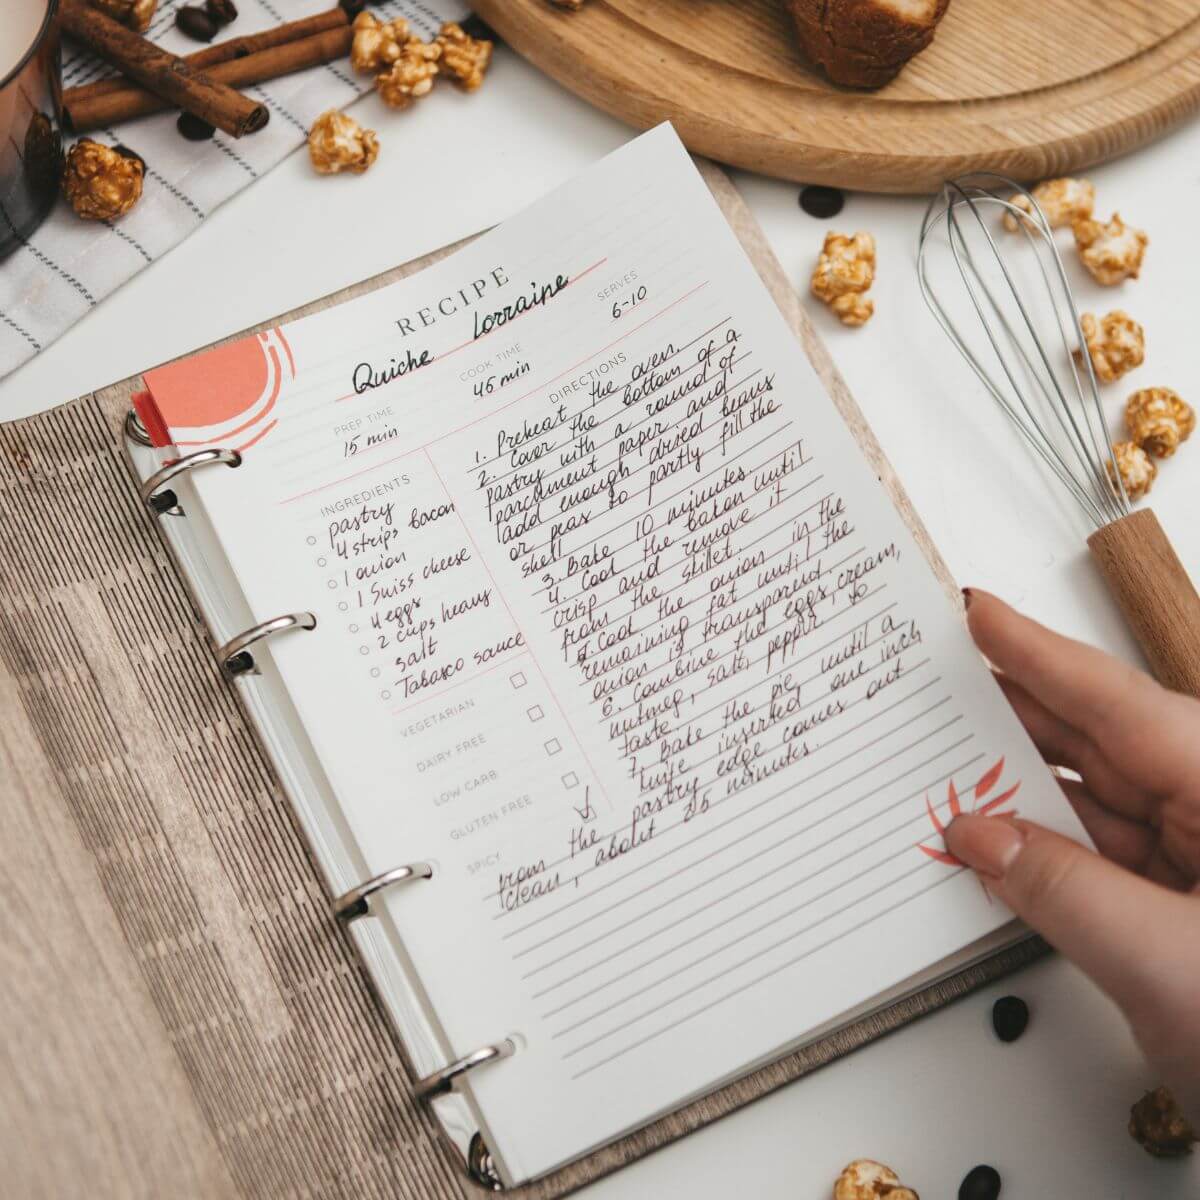 RECIPE
Quiche Lorraine
PREP TIME
15 min
COOK TIME
45 min
SERVES
6-10
INGREDIENTS
pastry
4 strips bacon
1 onion
1 Suiss cheese
4 eggs
2 cups heavy
salt
Tabasco sauce
VEGETARIAN
DAIRY FREE
LOW CARB
GLUTEN FREE
SPICY
DIRECTIONS
1. Preheat the oven.
2. Cover the bottom of a
pastry with a round of
parchment paper and
add enough dried beans
or peas to partly fill the
shell
3. Bake 10 minutes.
4. Cook the bakon until
crisp and remove it
from the skillet.
5. Cook the onion in the
remaining fat until the
onion is transparent.
6. Combine the eggs, cream,
nutmeg, salt, pepper, to
taste.
7. Bake the pie until a
knife inserted one inch
from the pastry edge comes out
clean, about 25 minutes.